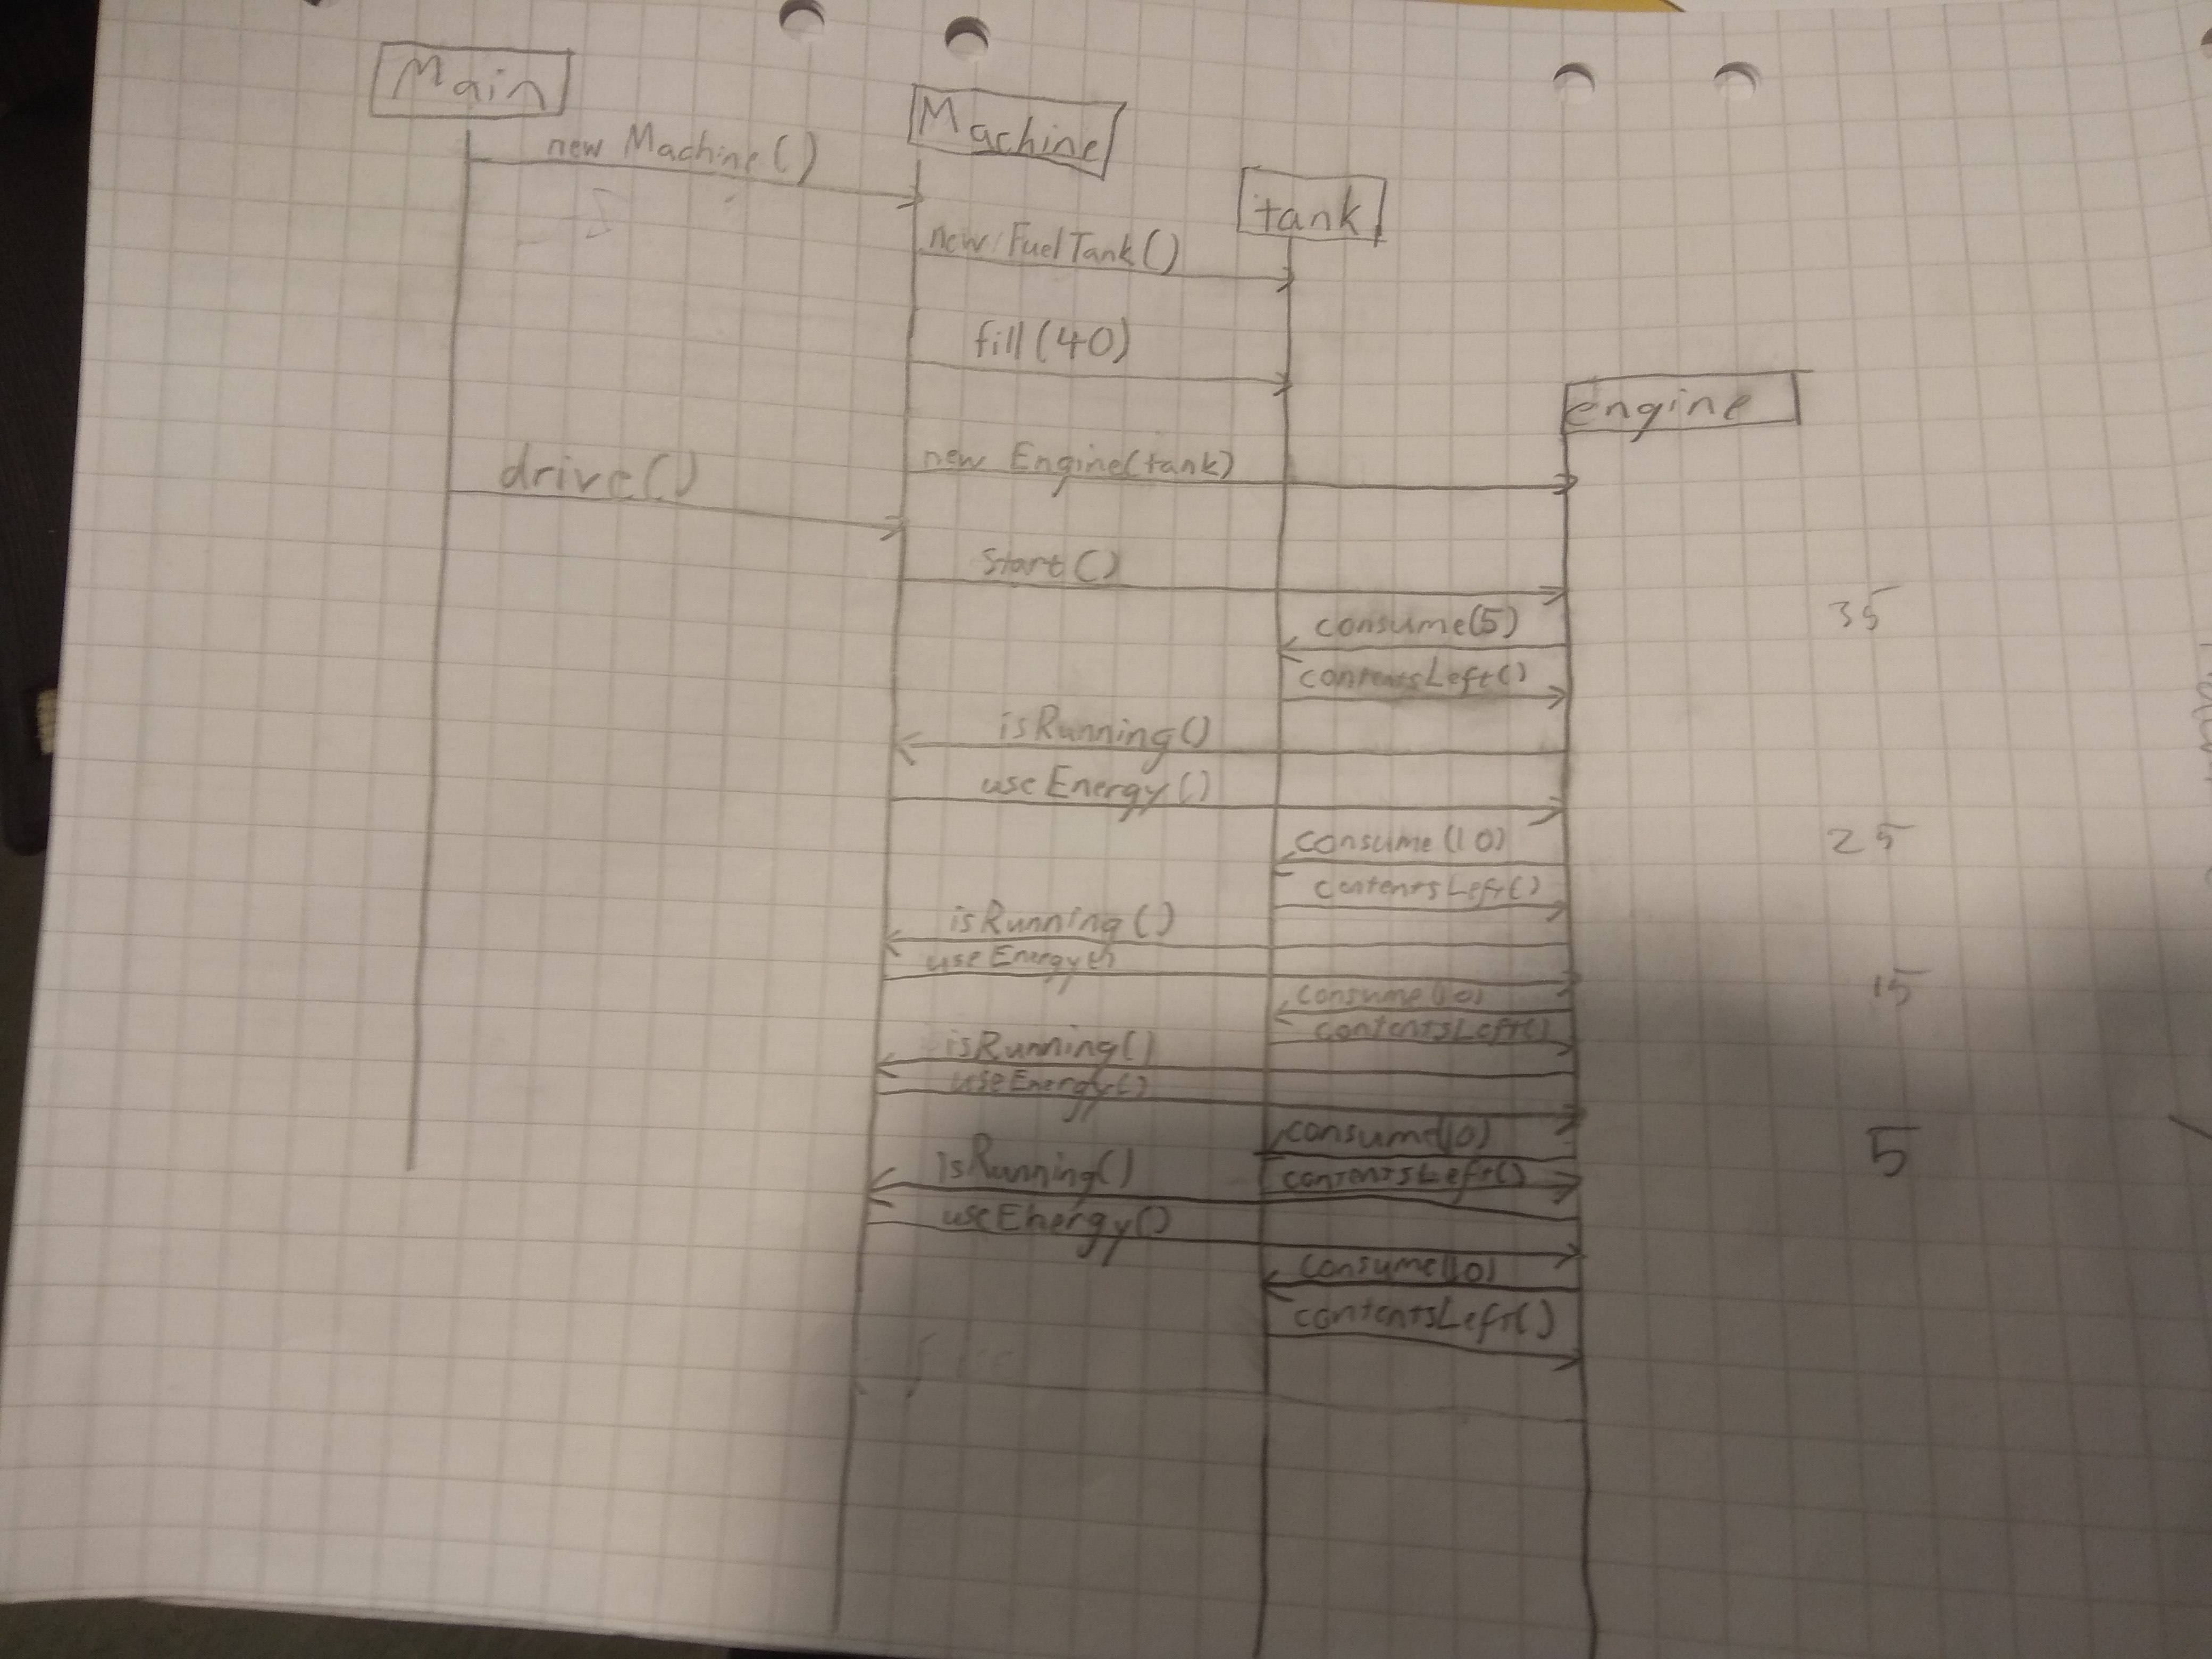 Main
Machine
new Machine()
tank
new FuelTank()
fill(40)
engine
new Engine(tank)
drive()
start()
consume(5)
35
contentsLeft()
isRunning()
useEnergy()
consume(10)
25
contentsLeft()
isRunning()
useEnergy()
consume(10)
15
contentsLeft()
isRunning()
useEnergy()
consume(10)
5
contentsLeft()
isRunning()
useEnergy()
consume(10)
contentsLeft()